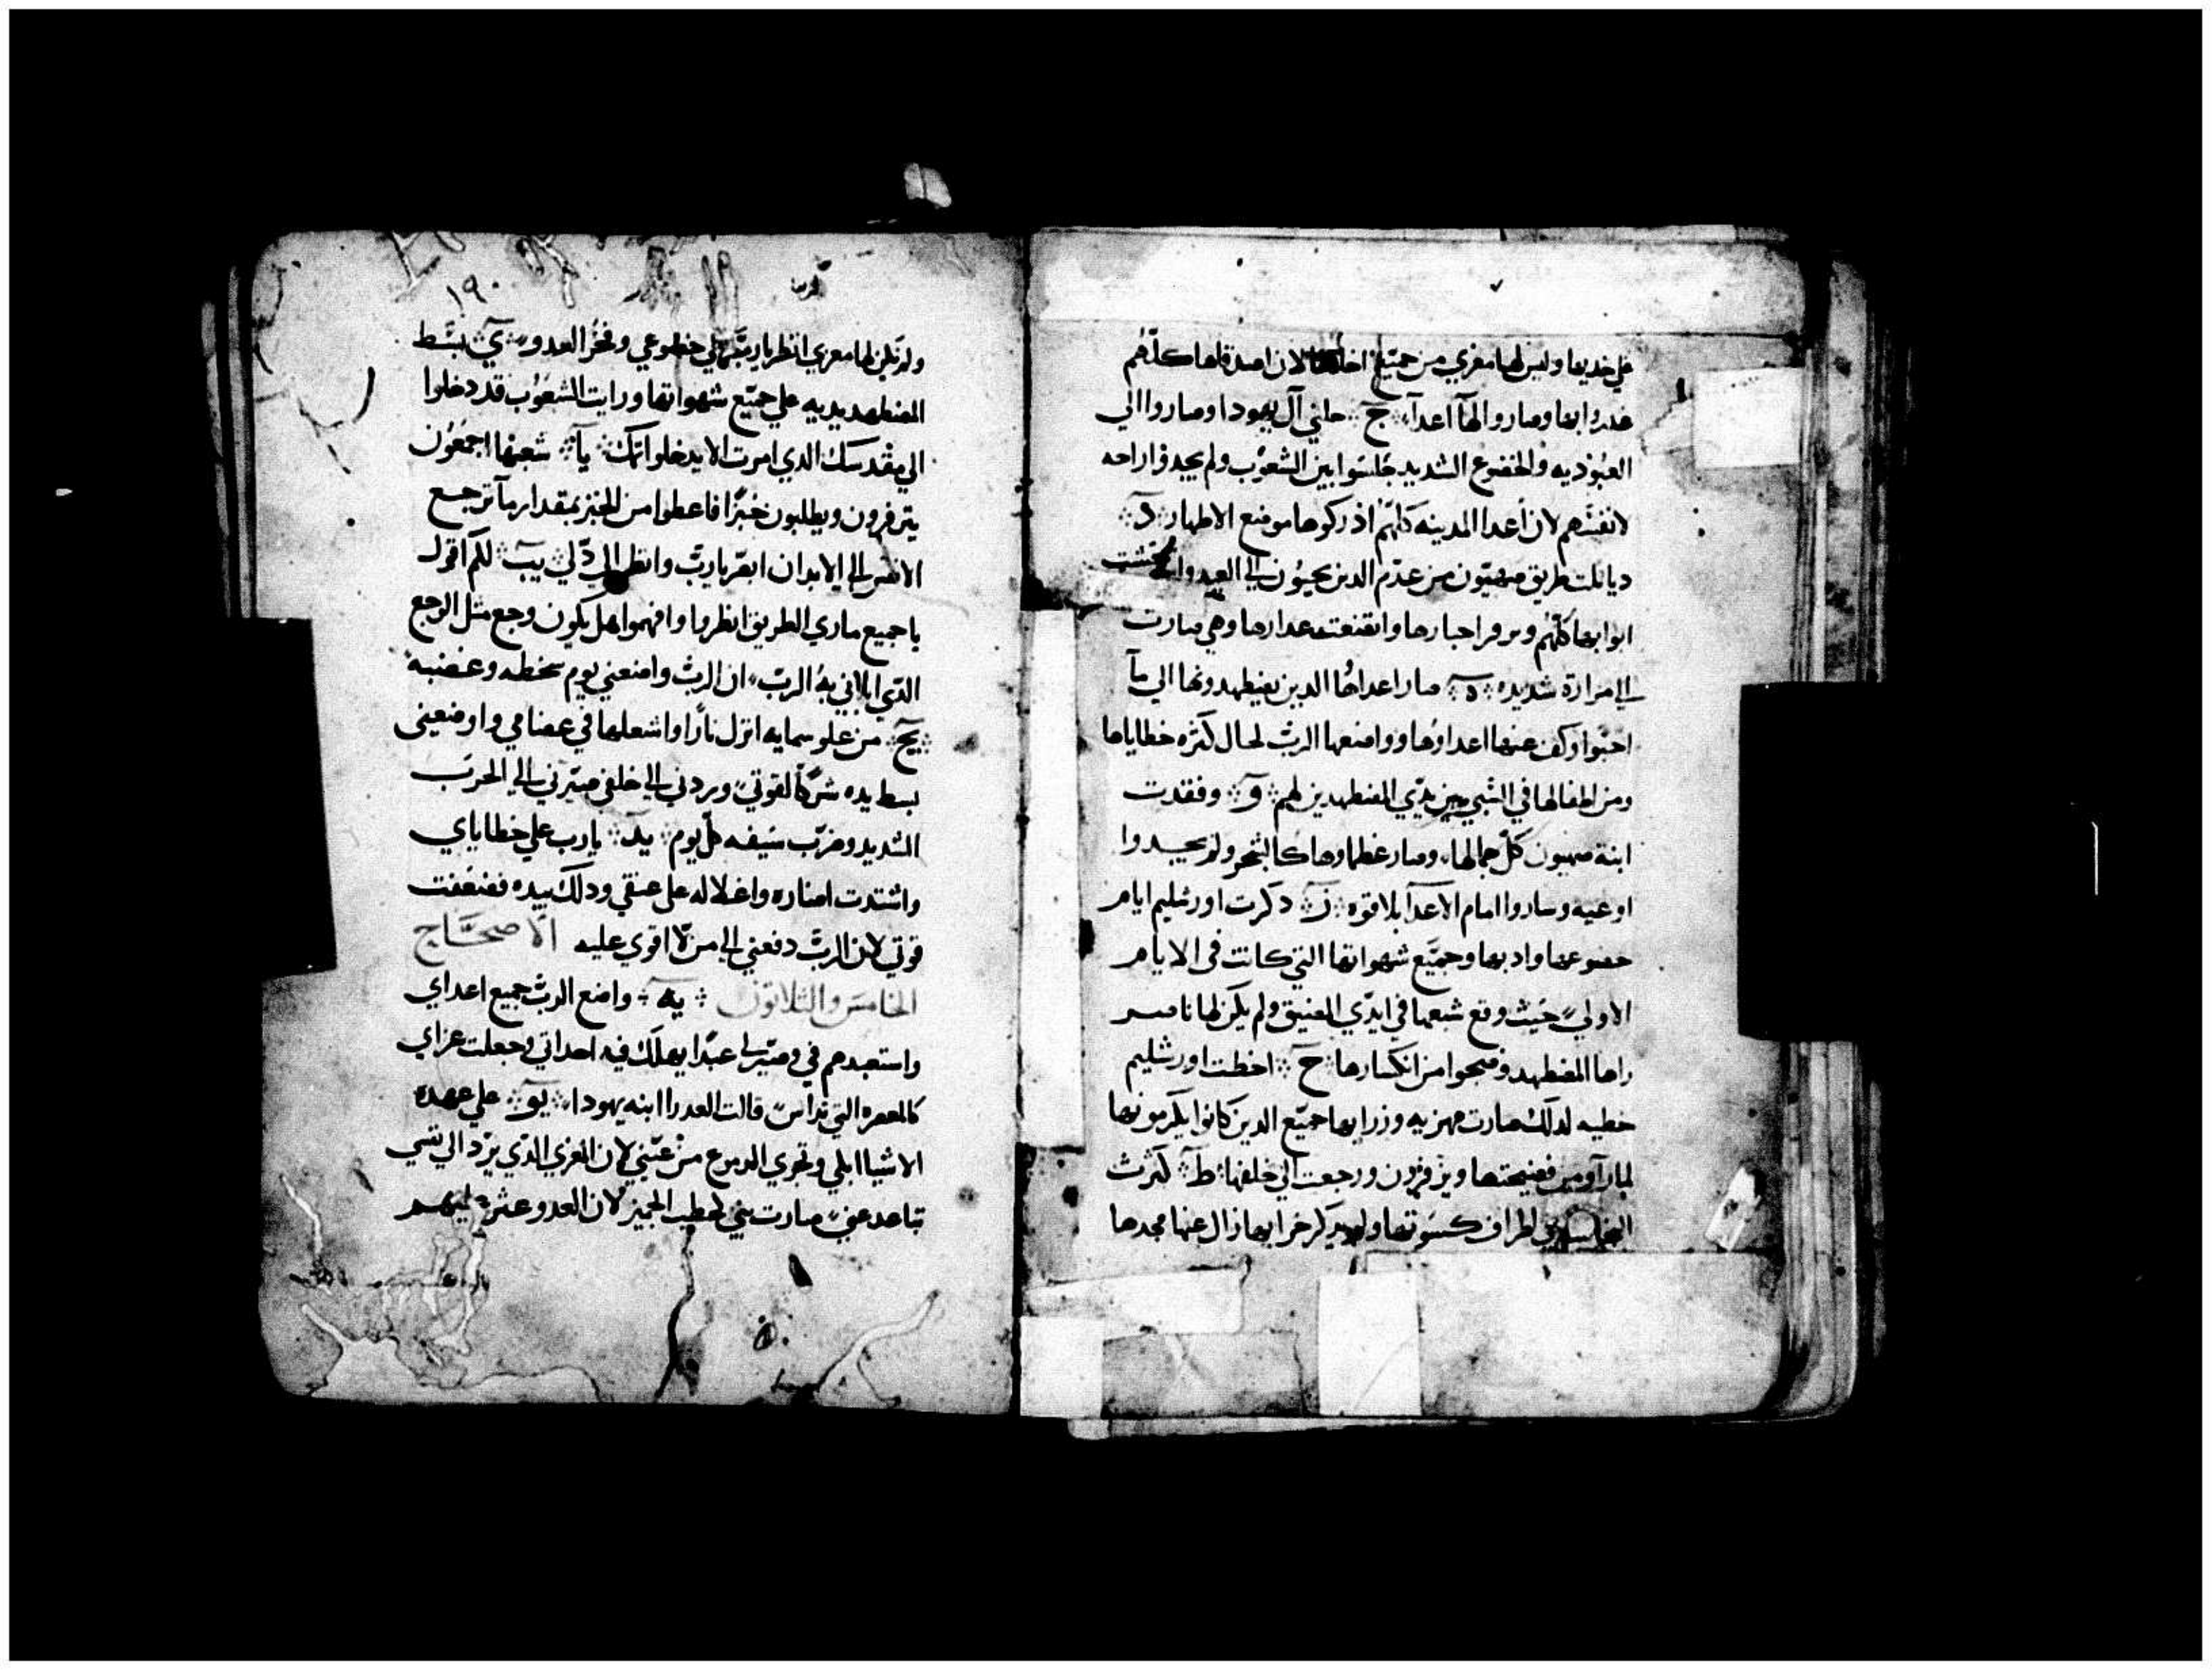 علي خديها وليس لها معزي من جميع لان اصدقاها كلهم
غدروا بها وصاروا لها اعدآ ج جلي آل يهودا وصاروا الي
العبوديه والخضوع الشديد جلسوا بين الشعوب ولم يجدوا راحه
لانفسهم لان أعدا المدينه كلهم ادركوها موضع الاطهار د
طريق صهيون من عدم الدين يحيون الي العيد
ابوابها كلهم احبارها وهي صارت
الي مرارة شديده ه صار اعداها الدين يضطهدونها الي مآ
احبوا وكف عنها اعداوها وواضعها الرب لحال كثره خطاياها
ومن اطفالها في السبي بين يدي المضطهدين لهم و وفقدت
ابنة صهيون كل جمالها وصار عظماوها ولم يجدوا
اوعيه وساروا امام الاعدآ بلا قوه ز دكرت اورشليم ايام
وجميع شهواتها التي كانت في الايام
الاولي حيث وقع شعبها في ايدي الضيق ولم يكن لها ناصر
راها المضطهد وضحوا من انكسارها ح اخطت اورشليم
خطيه لدلك صارت وزرا بها جميع الدين كانوا يكرمونها
لما رآو من فضيحتها ويزفرون ورجعت الي خلفها ط كثرت
اطراف كسوتها ولم خرابها زال عنها مجدها
١٩٠
ولم يكن لها معزي انظر يارب خضوعي وفخر العدو ي بسط
المضطهد يديه علي جميع شهواتها ورايت الشعوب قد دخلوا
الي مقدسك الدي امرت الا يدخلوا يآ شعبها اجمعون
يتزفرون ويطلبون خبزا فاعطوا من الخبز بمقدار مآ ترجع
الانفس الي الابدان ابصر يارب وانظر الي دلي يب لكم اقول
يا جميع ماري الطريق انظروا وافهموا هل يكون وجع مثل الوجع
الدي ابلاني به الرب ان الرب واضعني يوم سخطه وغضبه
يج من علو سمايه انزل نارا واشعلها في عضامي واوضعني
بسط يده شركا لقوتي وردني الي خلفي صيرني الي الحرب
الشديد وضرب سيفه كل يوم يد يارب علي خطاياي
واشتدت واغلاله علي عنقي ودلك بيده فضعفت
قوتي لان الرب دفعني الي من لا اقوي عليه الاصحاح
الخامس والثلاثون يه واضع الرب جميع اعداي
واستعبدهم في وصير لي عبدا يهلك فيه احداثي وجعلت عزاي
كالمعصره التي تداس قالت العدرا ابنه يهودا يو علي هده
الاشيا ابكي وتجري الدموع من عيني لان العزي الدي يرد الي نفسي
تباعد عني صارت بني لان العدو عليهم